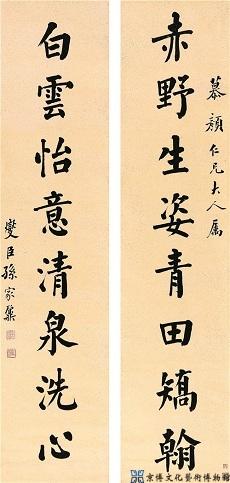 慕顏仁兄大人屬
赤野生姿青田矯翰
白雲怡意清泉洗心
燮臣孫家鼐
京博文化藝術博物館